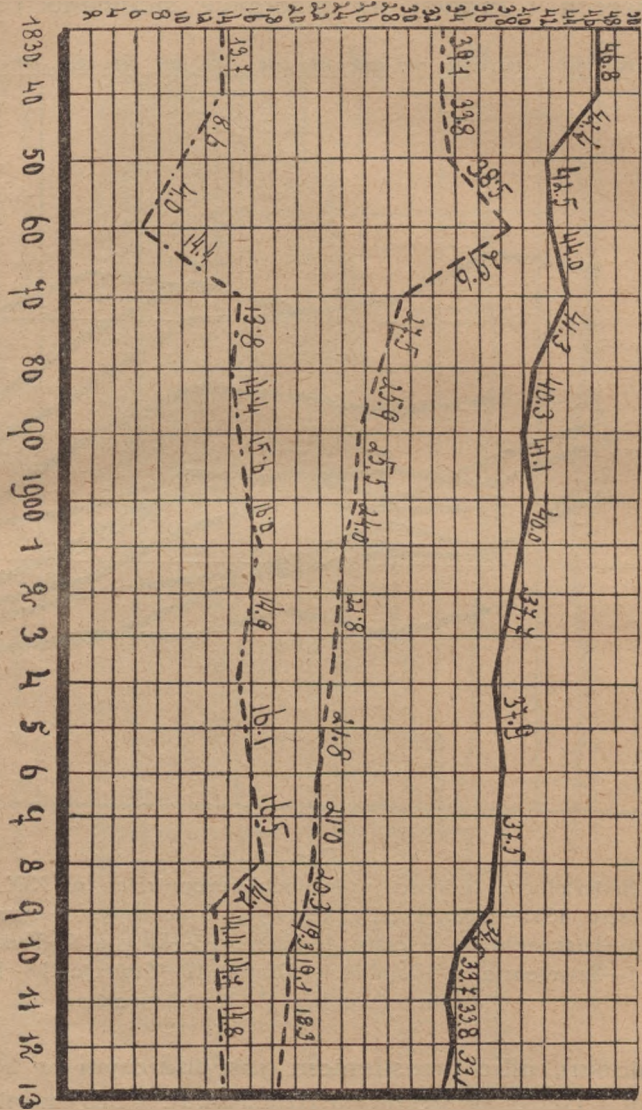 2 4 6 8 10 12 14 16 18 20 22 24 26 28 30 32 34 36 38 40 42 44 46 48 50
1830. 40 50 60 70 80 90 1900 1 2 3 4 5 6 7 8 9 10 11 12 13
46.8 41.5 44.0 41.3 40.3 41.1 40.0 37.7 37.9 37.5 33.7 33.8 33.1
33.8 38.5 29.6 27.5 25.9 25.5 24.0 22.8 21.8 21.0 20.3 19.3 19.1 18.3
13.7 8.6 4.0 13.8 14.4 15.6 16.0 14.9 16.1 16.5 14.2 14.4 14.8